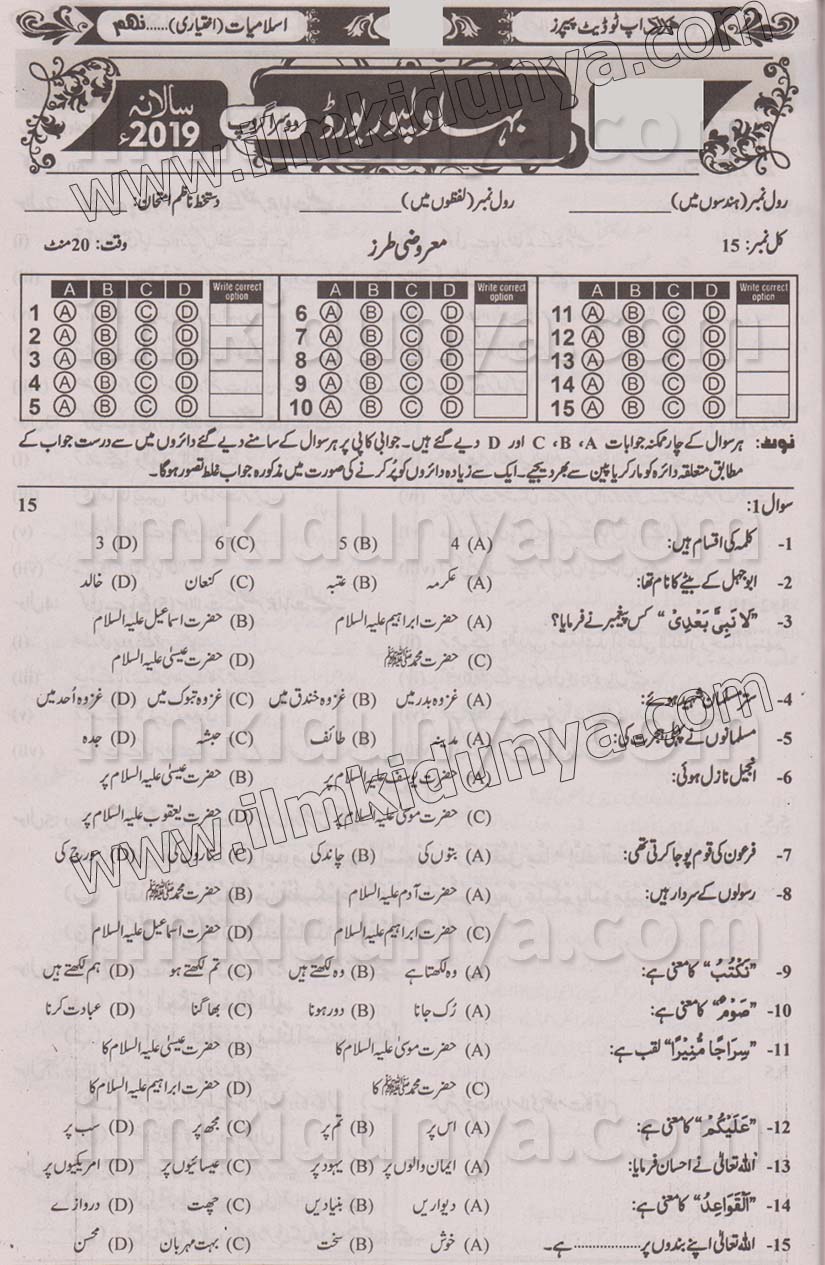 اپ ٹو ڈیٹ پیپرز
اسلامیات (اختیاری)......نہم
بہاولپور بورڈ
دوسرا گروپ
سالانہ
2019ء
رول نمبر (ہندسوں میں)__________ رول نمبر (لفظوں میں)__________ دستخط ناظم امتحان:__________
کل نمبر: 15 معروضی طرز وقت: 20 منٹ
A B C D Write correct option A B C D Write correct option A B C D Write correct option
1 A B C D 6 A B C D 11 A B C D
2 A B C D 7 A B C D 12 A B C D
3 A B C D 8 A B C D 13 A B C D
4 A B C D 9 A B C D 14 A B C D
5 A B C D 10 A B C D 15 A B C D
نوٹ: ہر سوال کے چار ممکنہ جوابات A، B، C اور D دیے گئے ہیں۔ جوابی کاپی پر ہر سوال کے سامنے دیے گئے دائروں میں سے درست جواب کے
مطابق متعلقہ دائرہ کو مارکر یا پین سے بھر دیجیے۔ ایک سے زیادہ دائروں کو پُر کرنے کی صورت میں مذکورہ جواب غلط تصور ہوگا۔
سوال 1: 15
1- کلمہ کی اقسام ہیں: (A) 4 (B) 5 (C) 6 (D) 3
2- ابوجہل کے بیٹے کا نام تھا: (A) عکرمہ (B) عتبہ (C) کنعان (D) خالد
3- ”لَا نَبِیَّ بَعْدِیْ“ کس پیغمبر نے فرمایا؟ (A) حضرت ابراہیم علیہ السلام (B) حضرت اسماعیل علیہ السلام
(C) حضرت محمد ﷺ (D) حضرت عیسیٰ علیہ السلام
4- ستر مسلمان شہید ہوئے: (A) غزوہ بدر میں (B) غزوہ خندق میں (C) غزوہ تبوک میں (D) غزوہ اُحد میں
5- مسلمانوں نے پہلی ہجرت کی: (A) مدینہ (B) طائف (C) حبشہ (D) جدہ
6- انجیل نازل ہوئی: (A) حضرت یوسف علیہ السلام پر (B) حضرت عیسیٰ علیہ السلام پر
(C) حضرت موسیٰ علیہ السلام پر (D) حضرت یعقوب علیہ السلام پر
7- فرعون کی قوم پوجا کرتی تھی: (A) بتوں کی (B) چاند کی (C) ستاروں کی (D) سورج کی
8- رسولوں کے سردار ہیں: (A) حضرت آدم علیہ السلام (B) حضرت محمد ﷺ
(C) حضرت ابراہیم علیہ السلام (D) حضرت اسماعیل علیہ السلام
9- ”نَکْتُبُ“ کا معنی ہے: (A) وہ لکھتا ہے (B) وہ لکھتے ہیں (C) تم لکھتے ہو (D) ہم لکھتے ہیں
10- ”صَوْمٌ“ کا معنی ہے: (A) رُک جانا (B) دور ہونا (C) بھاگنا (D) عبادت کرنا
11- ”سِرَاجًا مُّنِیْرًا“ لقب ہے: (A) حضرت موسیٰ علیہ السلام کا (B) حضرت عیسیٰ علیہ السلام کا
(C) حضرت محمد ﷺ کا (D) حضرت ابراہیم علیہ السلام کا
12- ”عَلَیْکُمْ“ کا معنی ہے: (A) اس پر (B) تم پر (C) مجھ پر (D) سب پر
13- اللہ تعالیٰ نے احسان فرمایا: (A) ایمان والوں پر (B) یہود پر (C) عیسائیوں پر (D) امریکیوں پر
14- ”اَلْقَوَاعِدُ“ کا معنی ہے: (A) دیواریں (B) بنیادیں (C) چھت (D) دروازے
15- اللہ تعالیٰ اپنے بندوں پر ............... ہے۔ (A) خوش (B) سخت (C) بہت مہربان (D) محسن
www.ilmkidunya.com
www.ilmkidunya.com
ilmkidunya.com
ilmkidunya.com
ilmkidunya.com
ilmkidunya.com
ilmkidunya.com
ilmkidunya.com